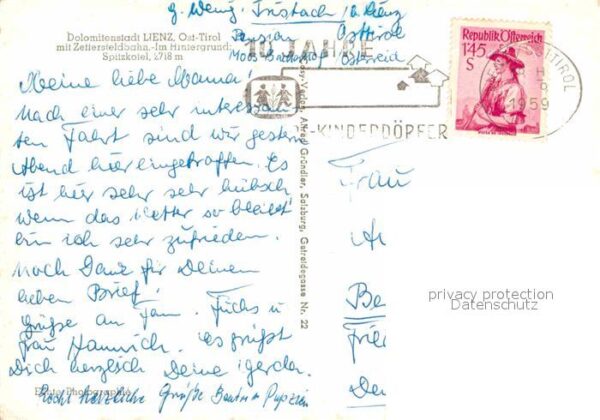 z. Wenz, Tristach / b. Lienz
Pension Osttirol
Moos Österreich
Dolomitenstadt LIENZ, Ost-Tirol
mit Zettersfeldbahn.-Im Hintergrund:
Spitzkofel, 2718 m
10 JAHRE
KINDERDÖRFER
OSTTIROL
1959
Republik Österreich
1'45
S
Meine liebe Mama!
Nach einer sehr interessan
ten Fahrt sind wir gestern
Abend hier eingetroffen. Es
ist hier sehr sehr hübsch
wenn das Wetter so bleibt
bin ich sehr zufrieden.
Noch Dank für Deinen
lieben Brief!
Grüße an Fam. Fuchs u
Frau Hannich. es grüßt
Dich herzlich Deine Gerda.
Echte Photographie
Recht herzliche Grüße
Verlag Alfred Gründler, Salzburg, Getreidegasse Nr. 22
Frau
An
Be
Frie
De
privacy protection
Datenschutz